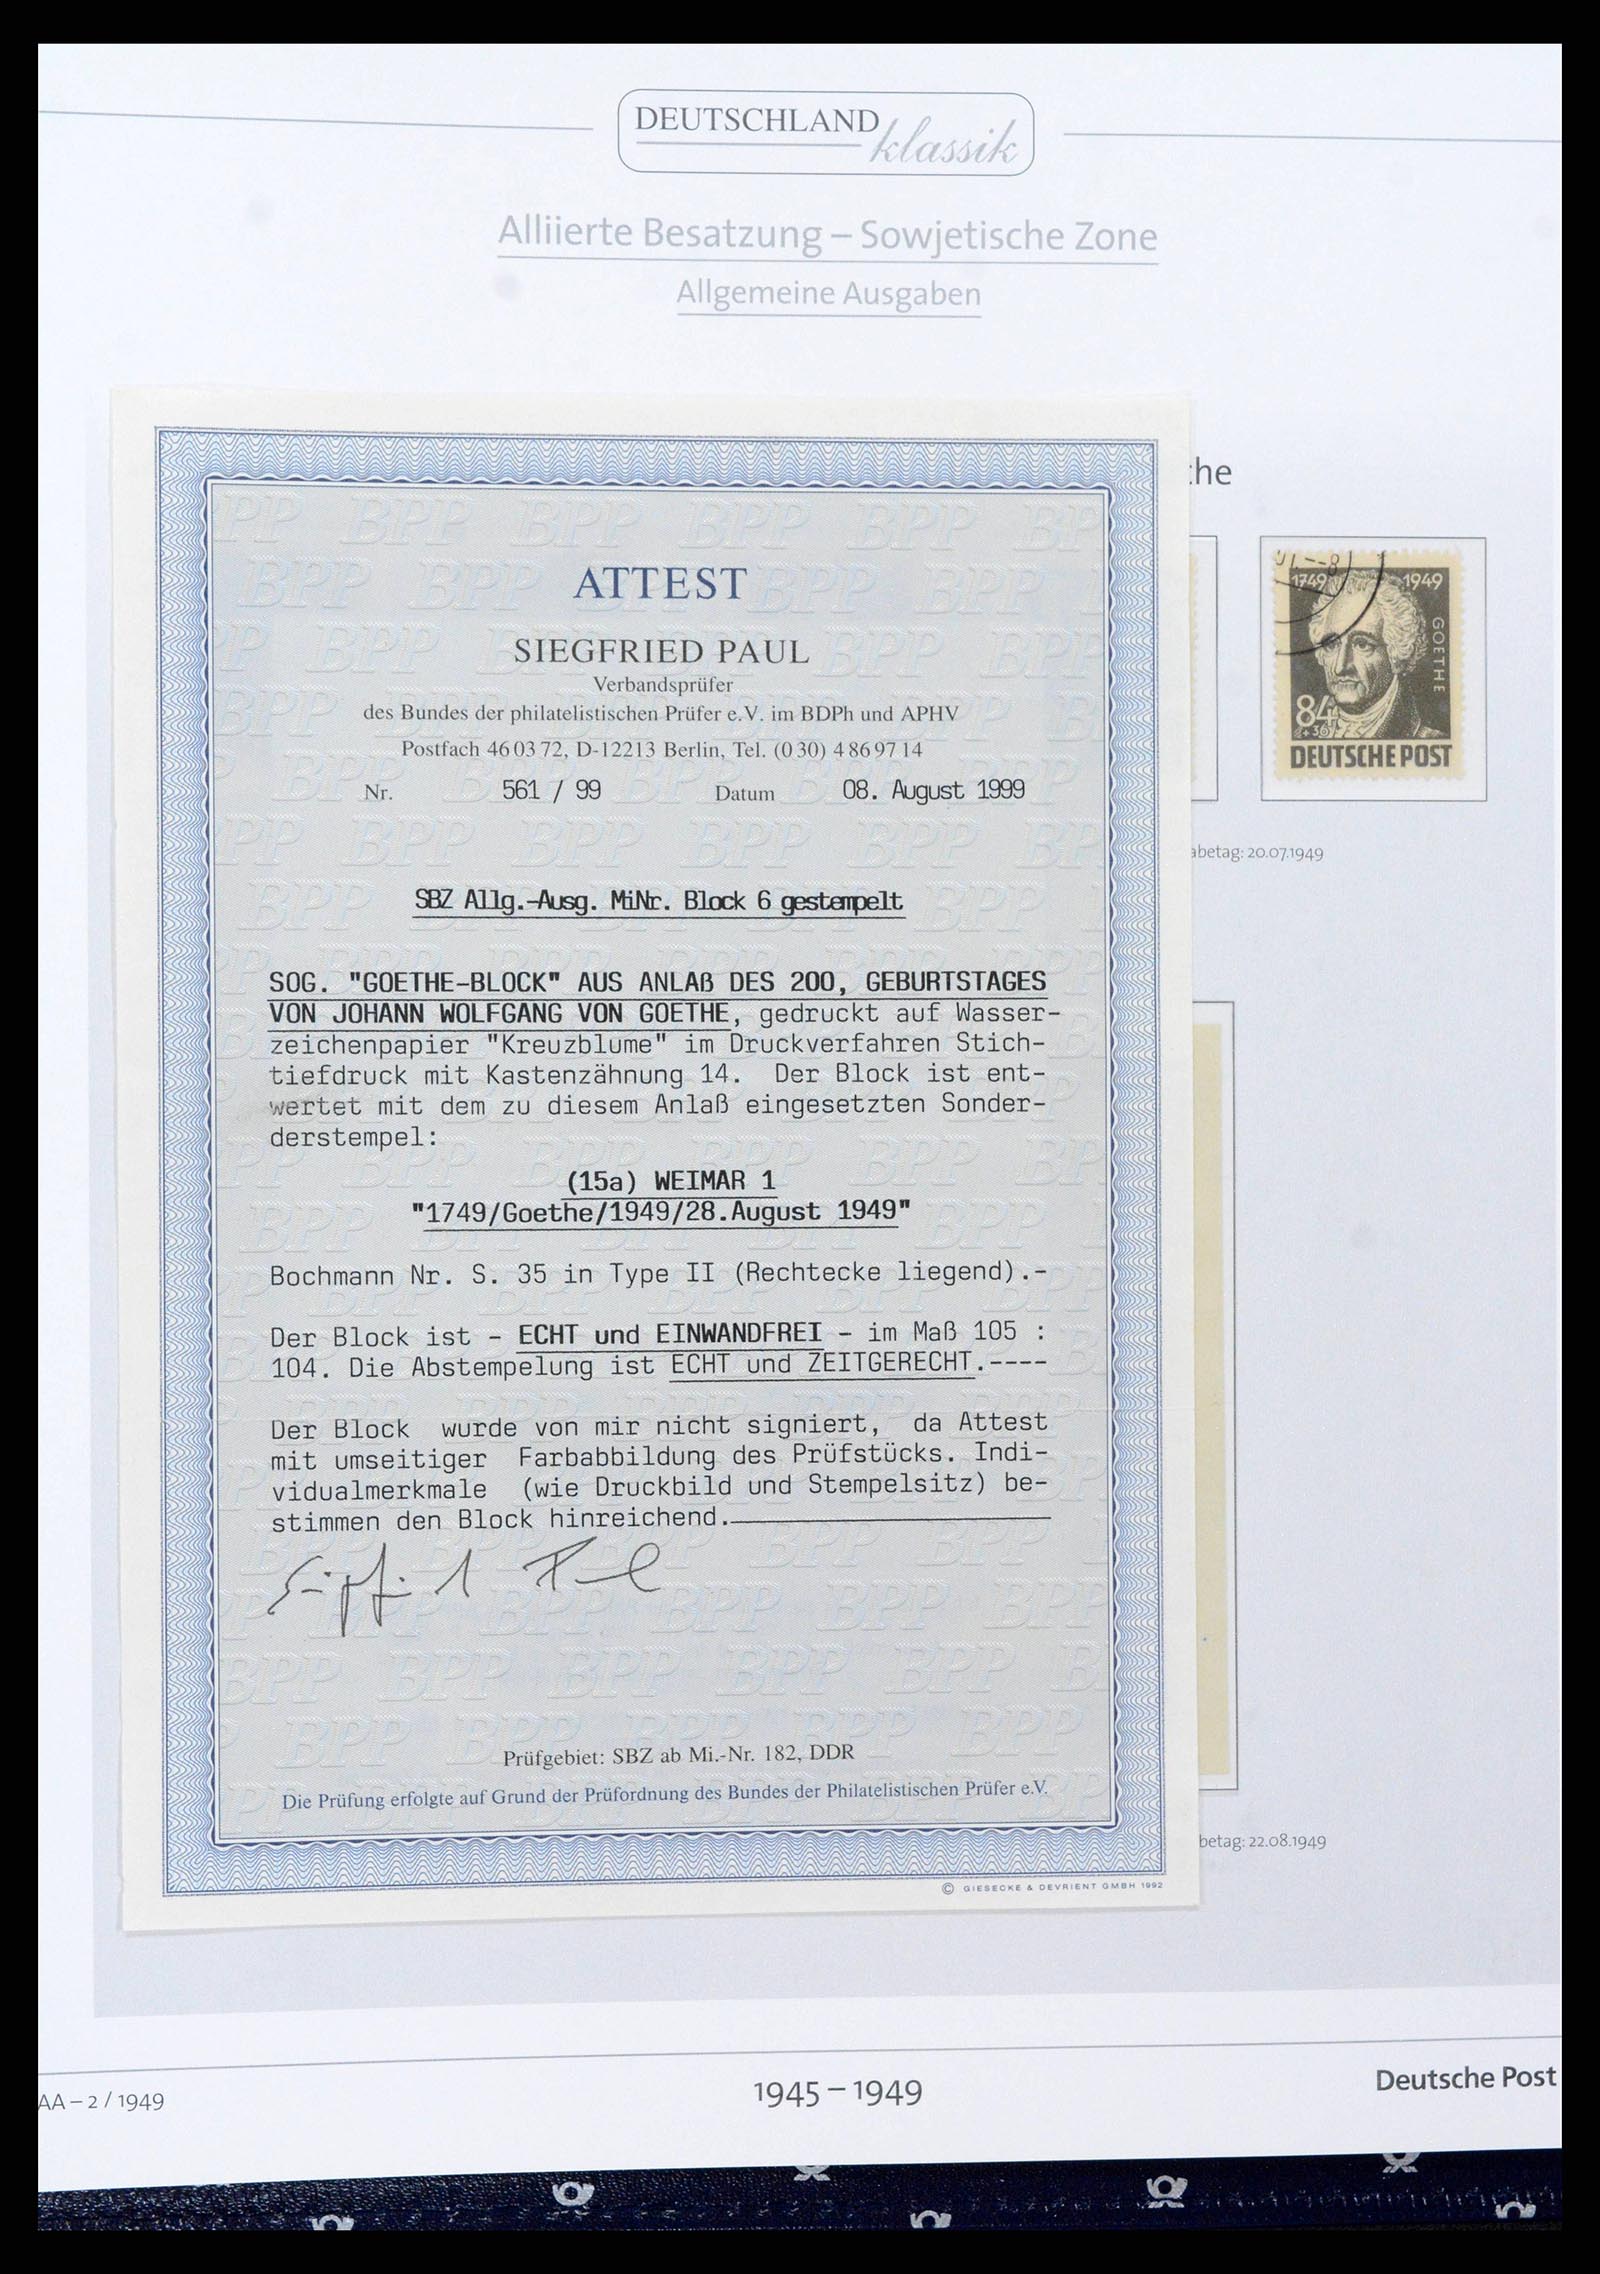 DEUTSCHLAND
klassik
Alliierte Besatzung – Sowjetische Zone
Allgemeine Ausgaben
ATTEST
SIEGFRIED PAUL
Verbandsprüfer
des Bundes der philatelistischen Prüfer e.V. im BDPh und APHV
Postfach 46 03 72, D-12213 Berlin, Tel. (0 30) 4 86 97 14
Nr. 561 / 99 Datum 08. August 1999
SBZ Allg.-Ausg. MiNr. Block 6 gestempelt
SOG. "GOETHE-BLOCK" AUS ANLAß DES 200, GEBURTSTAGES
VON JOHANN WOLFGANG VON GOETHE, gedruckt auf Wasser-
zeichenpapier "Kreuzblume" im Druckverfahren Stich-
tiefdruck mit Kastenzähnung 14. Der Block ist ent-
wertet mit dem zu diesem Anlaß eingesetzten Sonder-
derstempel:
(15a) WEIMAR 1
"1749/Goethe/1949/28.August 1949"
Bochmann Nr. S. 35 in Type II (Rechtecke liegend).-
Der Block ist - ECHT und EINWANDFREI - im Maß 105 :
104. Die Abstempelung ist ECHT und ZEITGERECHT.----
Der Block wurde von mir nicht signiert, da Attest
mit umseitiger Farbabbildung des Prüfstücks. Indi-
vidualmerkmale (wie Druckbild und Stempelsitz) be-
stimmen den Block hinreichend.
Siegfried Paul
Prüfgebiet: SBZ ab Mi.-Nr. 182, DDR
Die Prüfung erfolgte auf Grund der Prüfordnung des Bundes der Philatelistischen Prüfer e.V.
© GIESECKE & DEVRIENT GMBH 1992
che
1749 1949
GOETHE
84
+36
DEUTSCHE POST
abetag: 20.07.1949
betag: 22.08.1949
AA – 2 / 1949
1945 – 1949
Deutsche Post